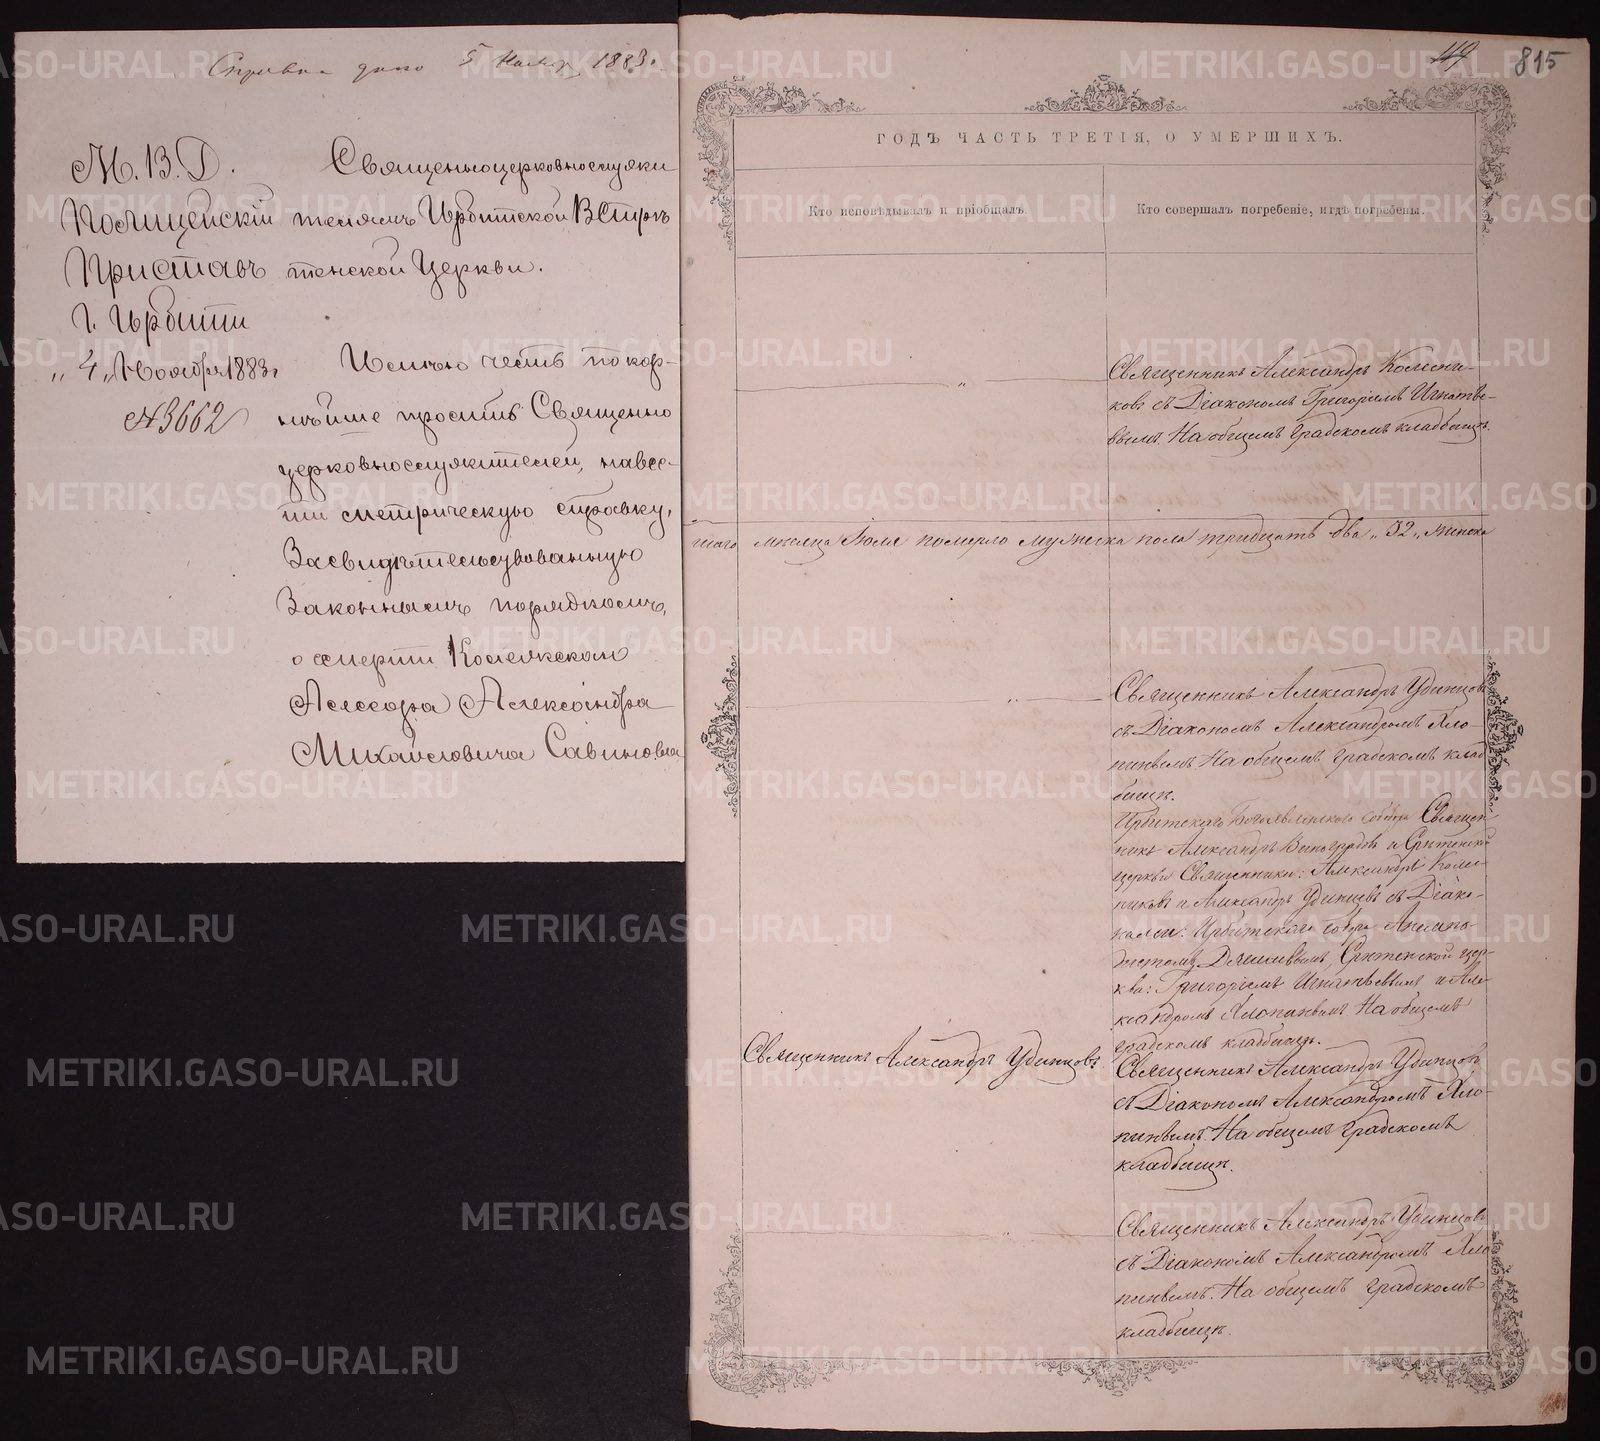 Справка дана 5 Ноябр 1883 г.
М. В. Д.
Полицейскій
Приставъ
г. Ирбити
„4„ Ноября 1883 г
№ 3662
Священноцерковнослужи
телямъ Ирбитской Встрѣ
тенской Церкви.
Имѣю честь покор-
нѣйше просить Священно
церковнослужителей, навес-
ти метрическую справку,
Засвидѣтельствованную
Законнымъ порядкомъ,
о смерти Коллежскаго
Ассесора Александра
Михайловича Савинова
49 815
ГОДЪ ЧАСТЬ ТРЕТІЯ, О УМЕРШИХЪ.
Кто исповѣдывалъ и пріобщалъ.
Кто совершалъ погребеніе, и гдѣ погребены.
Священникъ Александръ Колесни-
ковъ съ Діакономъ Григоріемъ Игнатье-
вымъ. На общемъ градскомъ кладбищѣ.
мѣсяца Іюля померло мужеска пола тридцать два „32„ женска
Священникъ Александръ Удинцовъ
съ Діакономъ Александромъ Хло-
пинымъ. На общемъ градскомъ клад
бищѣ.
Ирбитскаго Богоявленскаго собора Священ-
никъ Александръ Виноградовъ и Срѣтенской
церкви Священники: Александръ Колес-
никовъ и Александръ Удинцовъ съ Діако-
нами: Ирбитскаго собора
Срѣтенской цер-
кви: Григоріемъ Игнатьевымъ и Але-
ксандромъ Хлопинымъ. На общемъ
градскомъ кладбищѣ.
Священникъ Александръ Удинцовъ
Священникъ Александръ Удинцовъ
съ Діакономъ Александромъ Хло-
пинымъ. На общемъ градскомъ
кладбищѣ.
Священникъ Александръ Удинцовъ
съ Діакономъ Александромъ Хло
пинымъ. На общемъ градскомъ
кладбищѣ.
METRIKI.GASO-URAL.RU